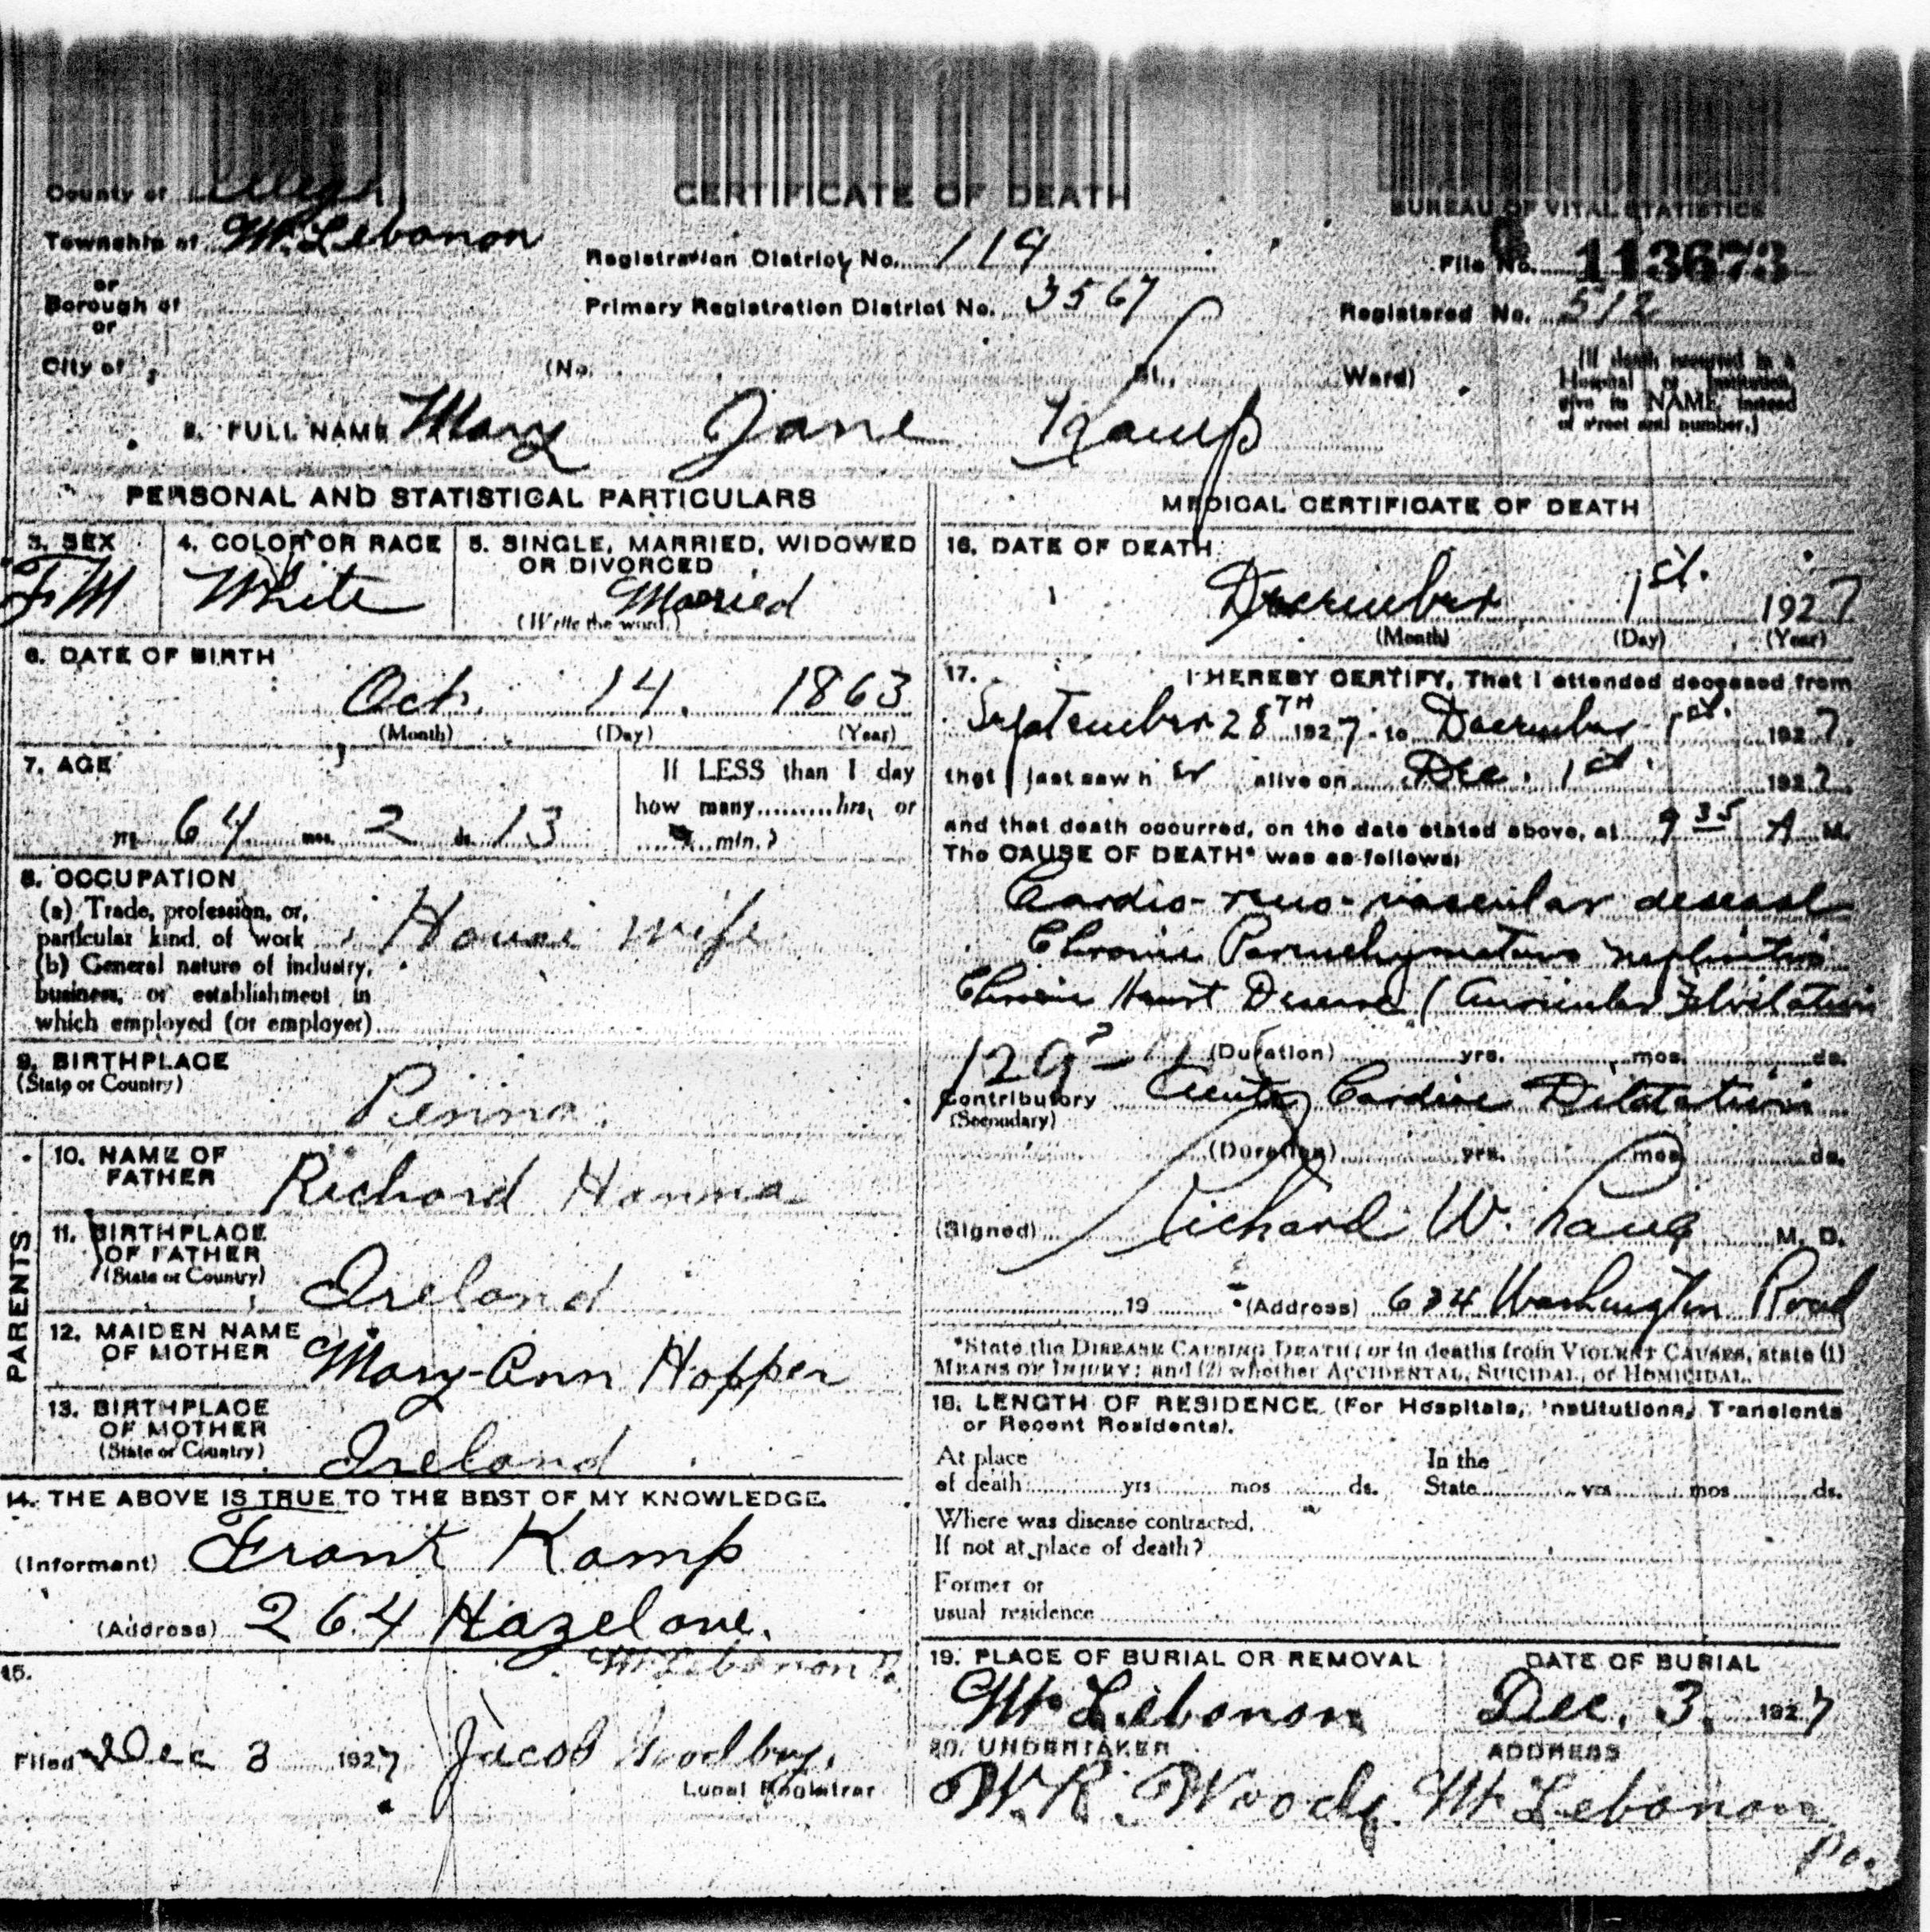 County of
CERTIFICATE OF DEATH
BUREAU OF VITAL STATISTICS
Township of Mt. Lebanon
Registration District No. 119
File No. 113673
or
Borough of
or
Primary Registration District No. 3567
Registered No. 512
City of
(No. St., Ward)
(If death occurred in a
Hospital or Institution,
give its NAME instead
of street and number.)
2. FULL NAME Mary Jane Kamp
PERSONAL AND STATISTICAL PARTICULARS
3. SEX
FM
4. COLOR OR RACE
White
5. SINGLE, MARRIED, WIDOWED
OR DIVORCED
Married
(Write the word.)
6. DATE OF BIRTH
Oct. 14. 1863
(Month) (Day) (Year)
7. AGE
64 mos. 2 ds. 13
If LESS than 1 day
how many.........hrs, or
......min.?
8. OCCUPATION
(a) Trade, profession, or,
particular kind of work House wife
(b) General nature of industry,
business, or establishment in
which employed (or employer)
9. BIRTHPLACE
(State or Country)
Penna.
PARENTS
10. NAME OF
FATHER
Richard Hanna
11. BIRTHPLACE
OF FATHER
(State or Country)
Ireland
12. MAIDEN NAME
OF MOTHER
Mary-Ann Hopper
13. BIRTHPLACE
OF MOTHER
(State or Country)
Ireland
14. THE ABOVE IS TRUE TO THE BEST OF MY KNOWLEDGE.
(Informant) Frank Kamp
(Address) 264 Hazel ave.
Mt Lebanon
15.
Filed Dec 3 1927 Jacob
Local Registrar
MEDICAL CERTIFICATE OF DEATH
16. DATE OF DEATH
December 1st. 1927
(Month) (Day) (Year)
17. I HEREBY CERTIFY, That I attended deceased from
September 28TH 1927 to December 1st. 1927.
that I last saw h er alive on Dec. 1st. 1927.
and that death occurred, on the date stated above, at 9 35 A M.
The CAUSE OF DEATH* was as follows:
Cardio- vascular disease
Chronic Parenchymatous nephritis
Chronic Heart Disease (Auricular
129
(Duration) yrs. mos. ds.
Contributory Acute Cardiac Dilatation
(Secondary)
(Duration) yrs. mos ds.
(Signed) Richard W. M. D.
19 (Address) 634 Washington Road
*State the DISEASE CAUSING DEATH; or in deaths from VIOLENT CAUSES, state (1)
MEANS OF INJURY; and (2) whether ACCIDENTAL, SUICIDAL, or HOMICIDAL.
18. LENGTH OF RESIDENCE (For Hospitals, Institutions, Transients
or Recent Residents).
At place
of death yrs mos ds.
In the
State yrs mos ds.
Where was disease contracted,
If not at place of death?
Former or
usual residence
19. PLACE OF BURIAL OR REMOVAL
Mt. Lebanon
DATE OF BURIAL
Dec. 3. 1927
20. UNDERTAKER
W. R. Woods
ADDRESS
Mt Lebanon
Pa.